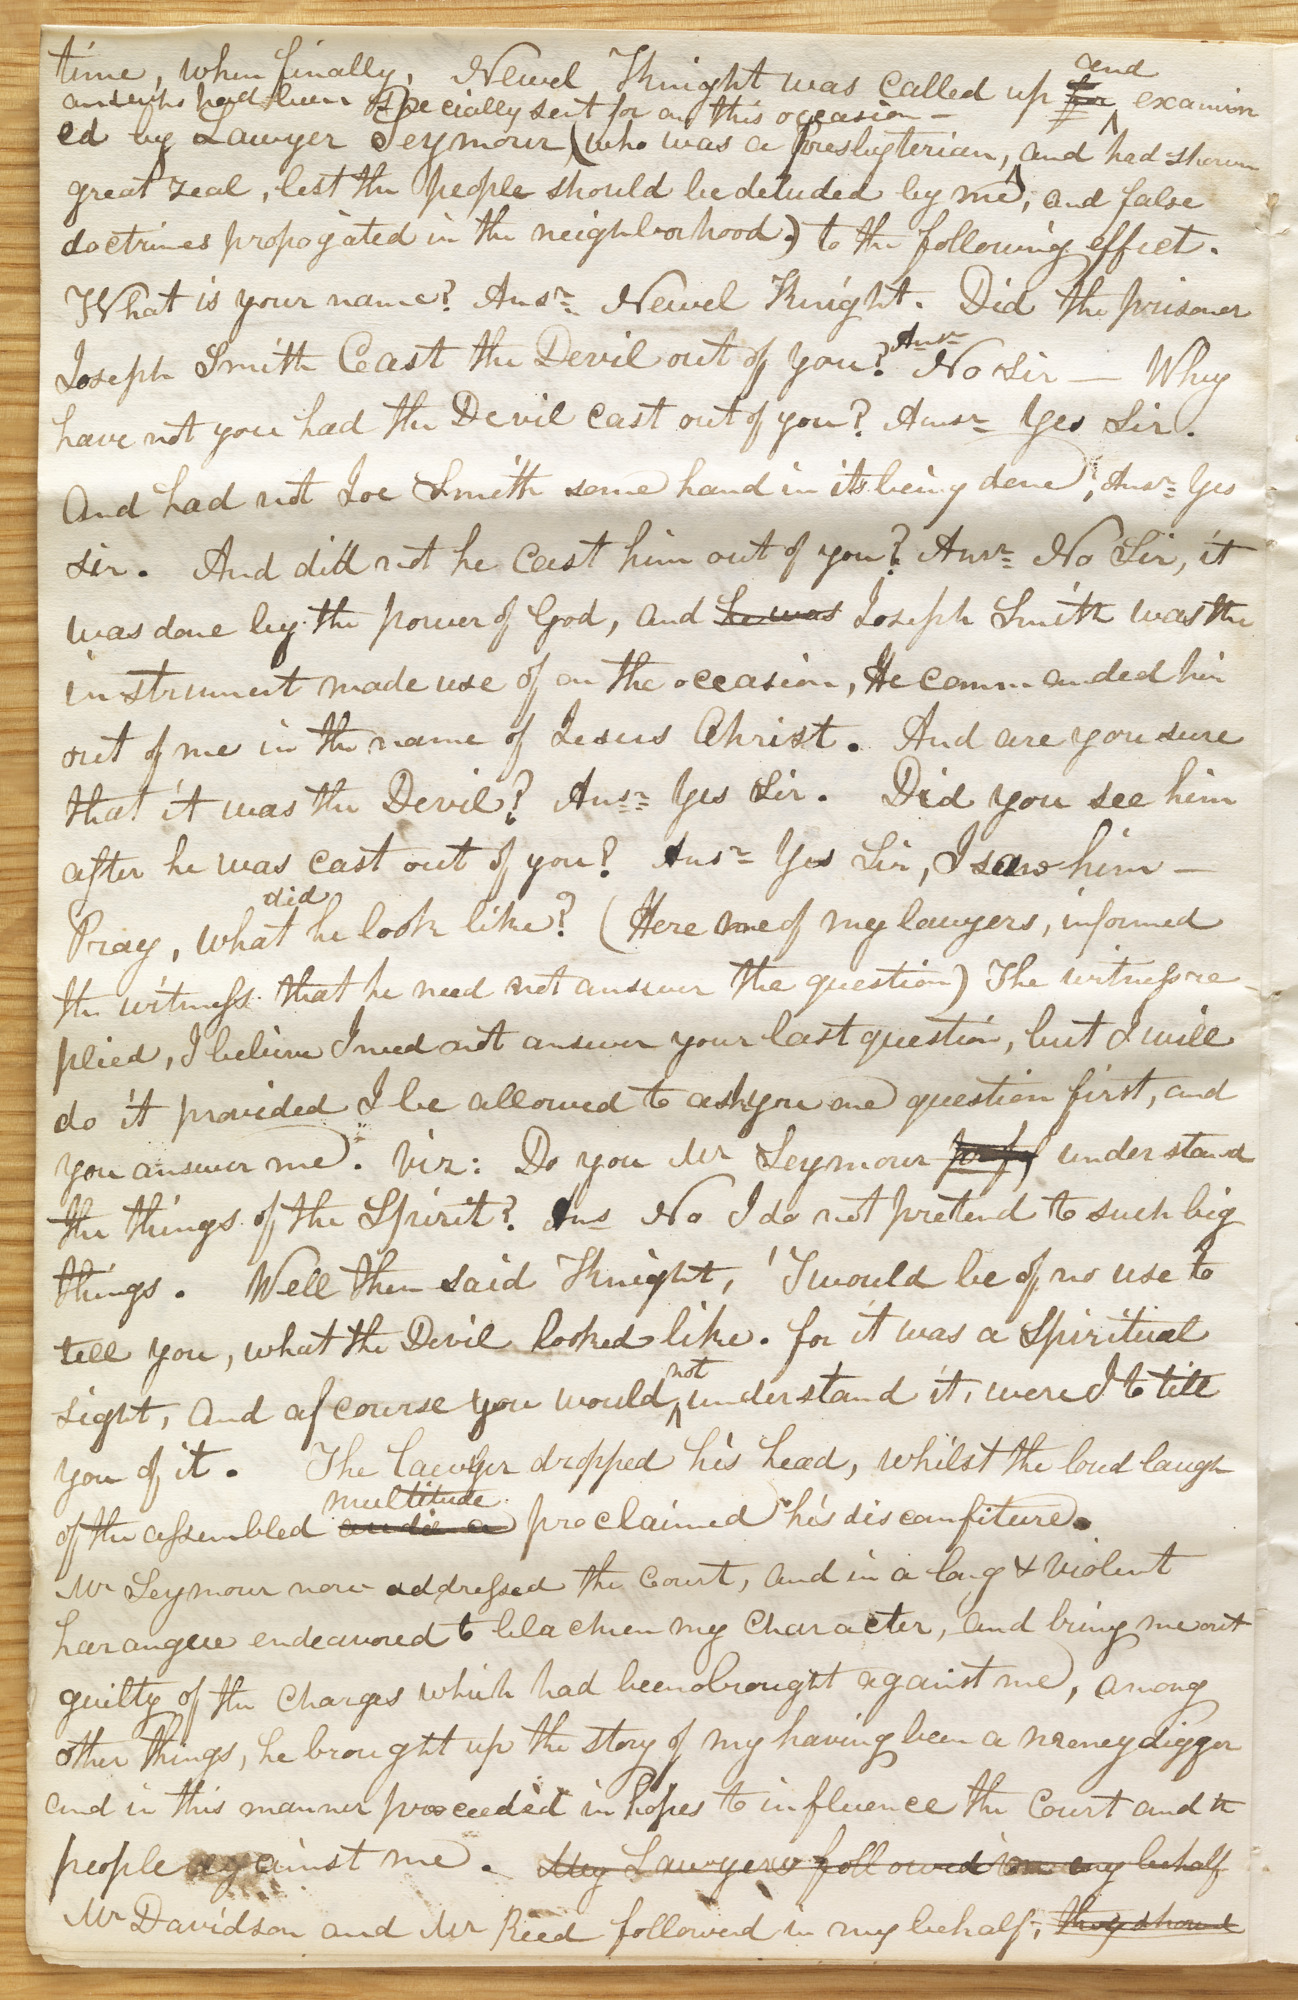 time, when finally, Newel Knight was called up for and examin
and who had been specially sent for on this occasion —
ed by Lawyer Seymour (who was a Presbyterian, and had shown
great zeal, lest the people should be deluded by me, and false
doctrines propogated in the neighborhood.) to the following effect.
What is your name? Ansr= Newel Knight. Did the prisoner
Joseph Smith Cast the Devil out of you? Ansr No sir — Why
have not you had the Devil cast out of you? Ansr= Yes Sir.
And had not Joe Smith some hand in its being done, Ansr= Yes
sir. And did not he cast him out of you? Ansr= No Sir, it
was done by the power of God, and he was Joseph Smith was the
instrument made use of on the occasion, He commanded him
out of me in the name of Jesus Christ. And are you sure
that it was the Devil? Ansr= Yes Sir. Did you see him
after he was cast out of you? Ansr= Yes Sir, I saw him —
Pray, what did he look like? (Here one of my lawyers, informed
the witness that he need not answer the question) The witness re-
plied, I believe I need not answer your last question, but I will
do it provided I be allowed to ask you one question first, and
you answer me. viz: Do you Mr Seymour understand
the things of the Spirit? Ans No I do not pretend to such big
things. Well then said Knight, 'Twould be of no use to
tell you, what the Devil looked like. for it was a Spiritual
sight, and of course you would not understand it, were I to tell
you of it. The lawyer dropped his head, whilst the loud laugh
of the assembled audience multitude proclaimed his discomfiture.
Mr Seymour now addressed the Court, and in a long & violent
harangue endeavored to blacken my character, and bring me out
guilty of the charges which had been brought against me, among
other things, he brought up the story of my having been a money digger
and in this manner proceeded in hopes to influence the Court and the
people against me. My Lawyers followed on my behalf
Mr Davidson and Mr Reed followed in my behalf, they showed